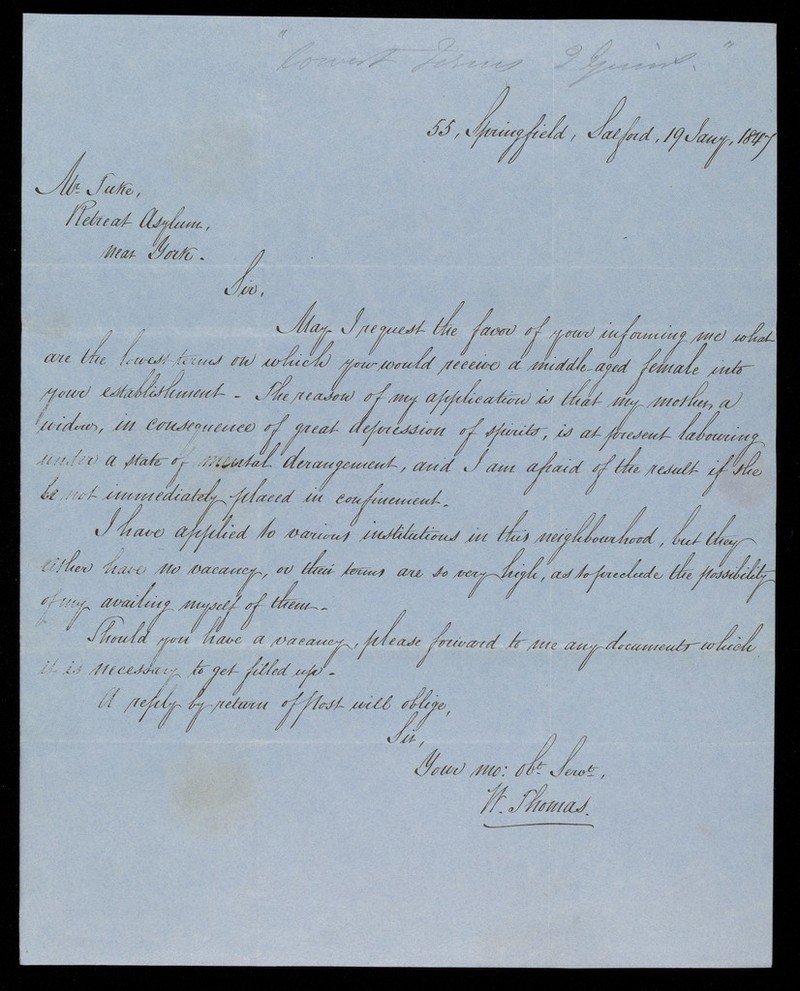 "Lowest Terms 2 Guins."
55, Springfield, Salford, 19 Jany, 1847
Mr. Tuke,
Retreat Asylum,
near York.
Sir,
May I request the favor of your informing me what
are the lowest terms on which you would receive a middle aged female into
your establishment - The reason of my application is that my mother, a
widow, in consequence of great depression of spirits, is at present labouring
under a state of mental derangement, and I am afraid of the result if she
be not immediately placed in confinement.
I have applied to various institutions in this neighbourhood, but they
either have no vacancy, or their terms are so very high, as to preclude the possibility
of my availing myself of them -
Should you have a vacancy, please forward to me any documents which
it is necessary to get filled up -
A reply by return of post will oblige,
Sir,
Your mo: obt. Servt.,
W. Thomas.